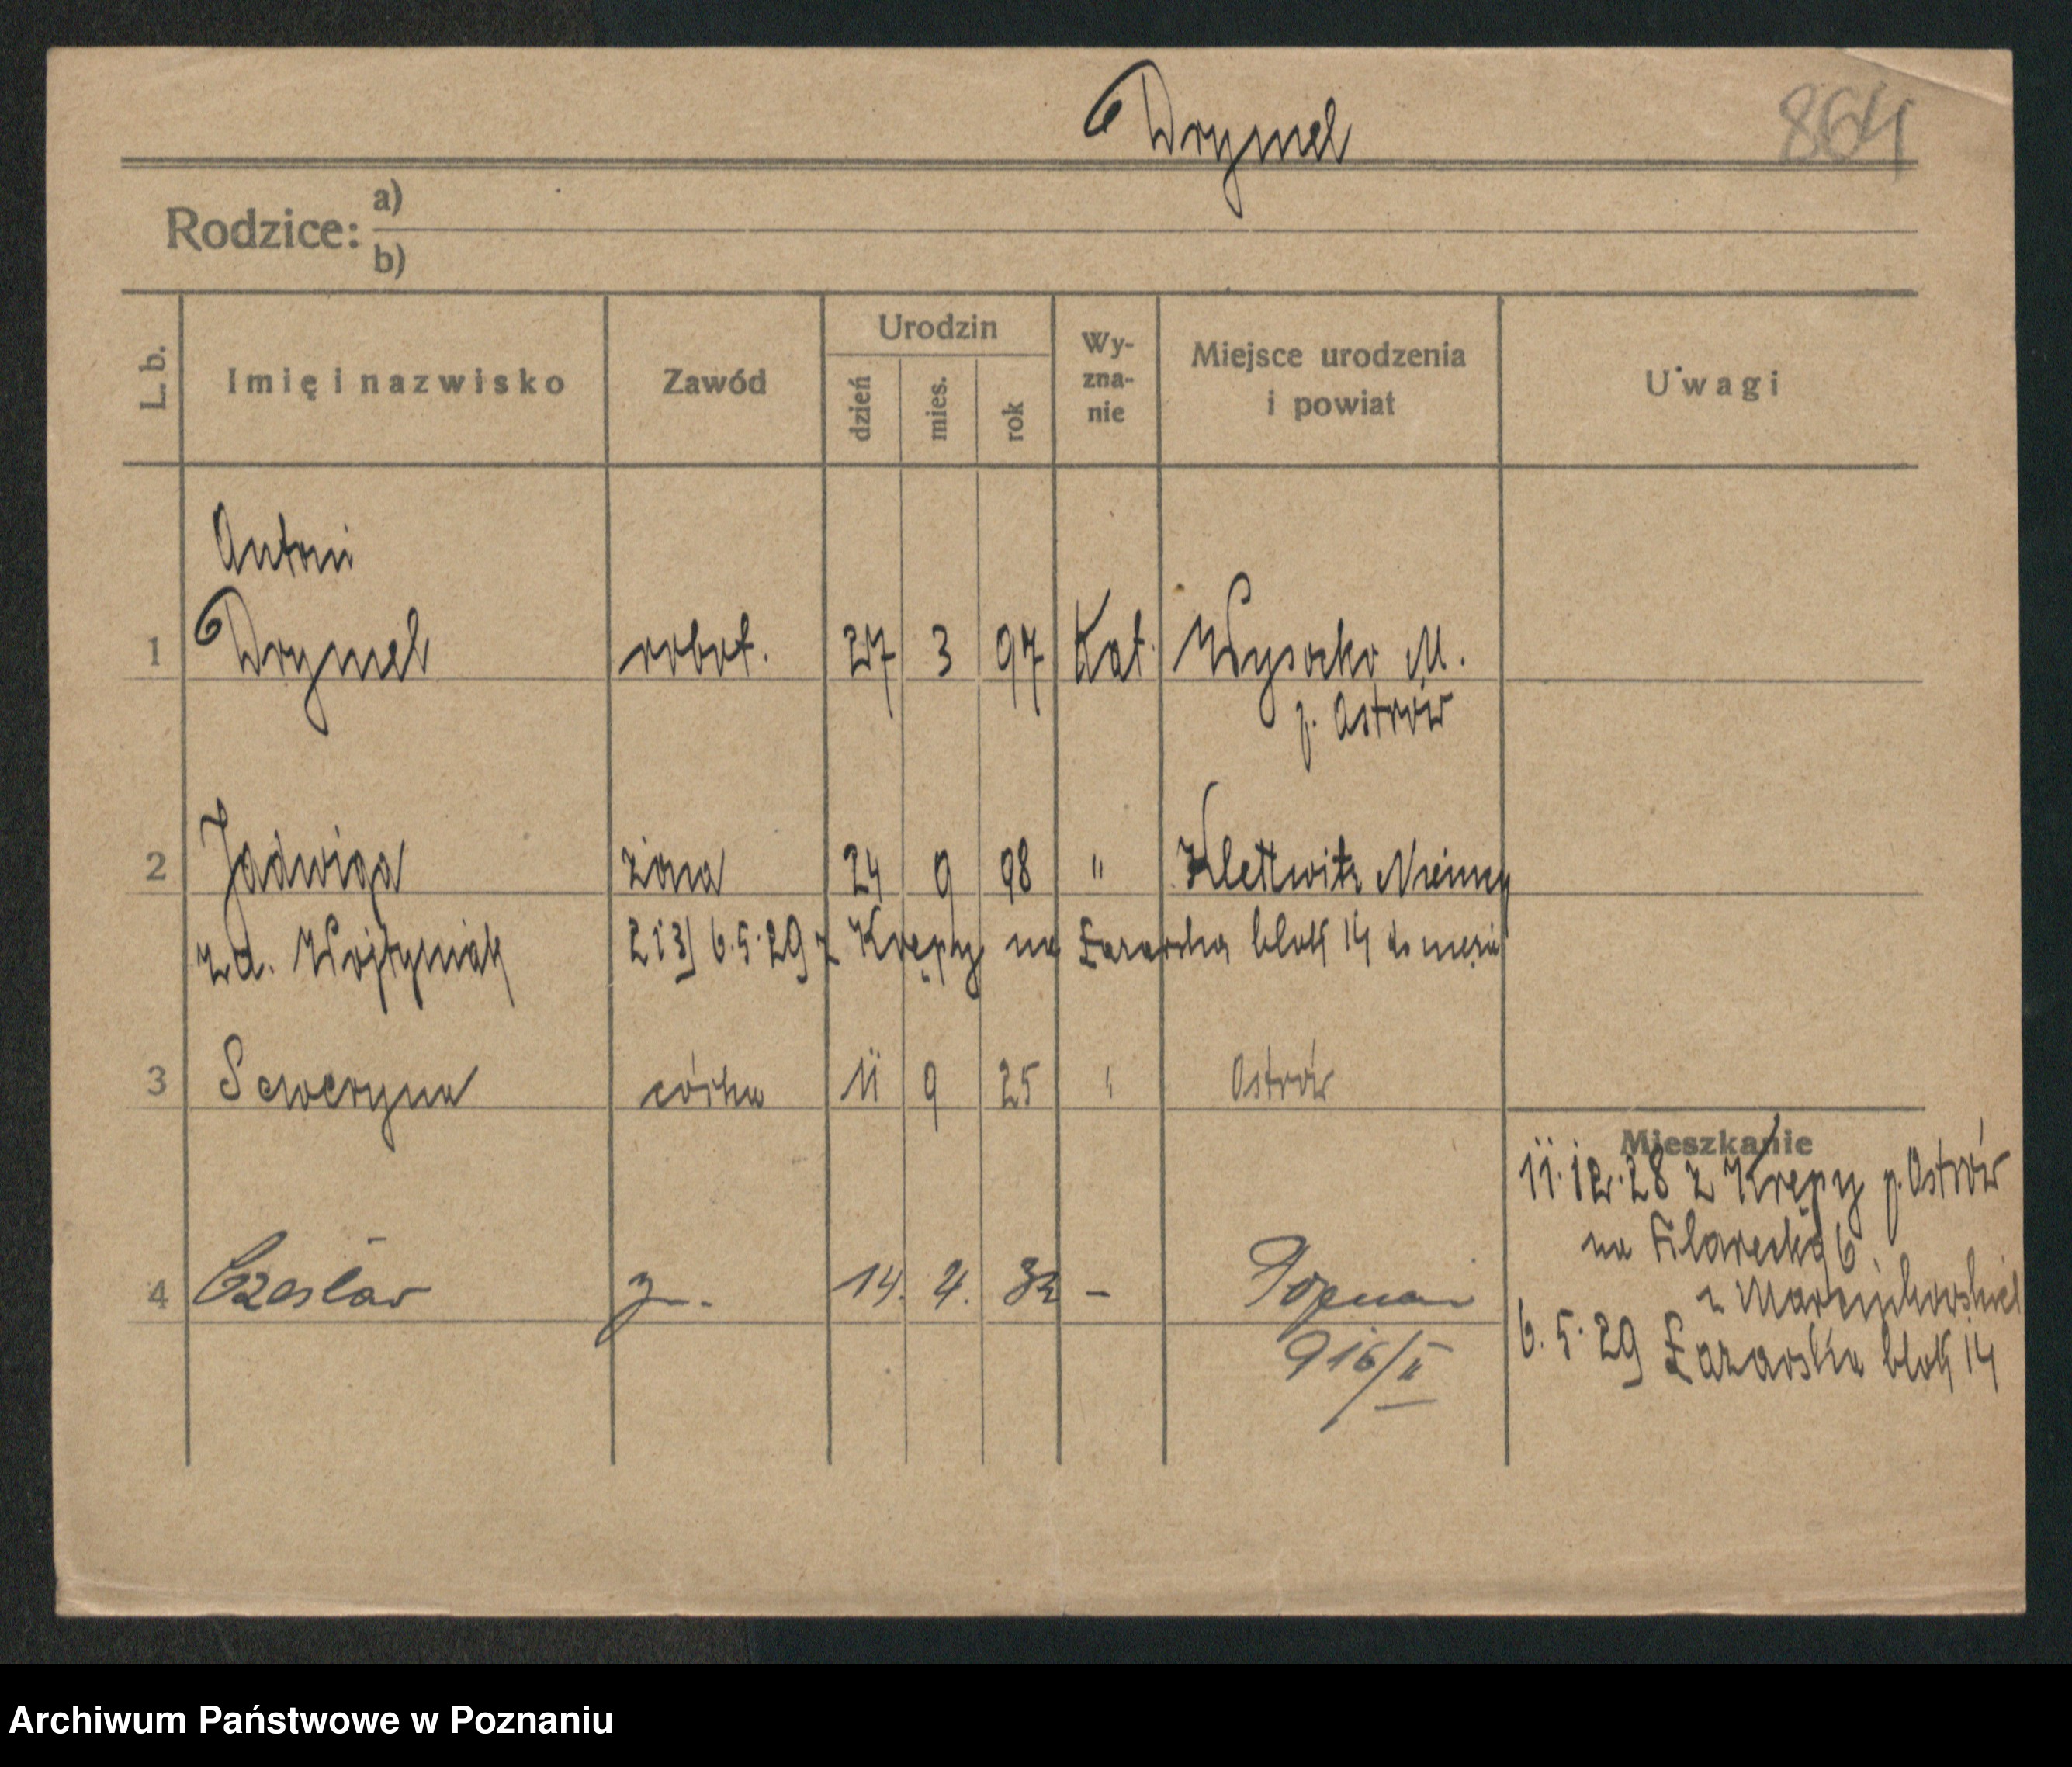 Drymel
864
Rodzice: a)
b)
L. b.
Imię i nazwisko
Zawód
Urodzin
dzień
mies.
rok
Wy-
zna-
nie
Miejsce urodzenia
i powiat
Uwagi
Antoni
1 Drymel robot. 27 3 97 Kat. Wysocko M.
p. Ostrów
2 Jadwiga żona 24 9 98 " Klettwitz Niemcy
z d. Wojtyniak 2 i 3) 6.5.29 z Krępy na Łazarska blok 14 do męża
3 Seweryna córka 11 9 25 " Ostrów
Mieszkanie
11.12.28 z Krępy p. Ostrów
na Filarecką 6
z Marcinkowskich
4 Czesław 14. 4. 32 - Poznań
6.5.29 Łazarska blok 14
916/II
Archiwum Państwowe w Poznaniu